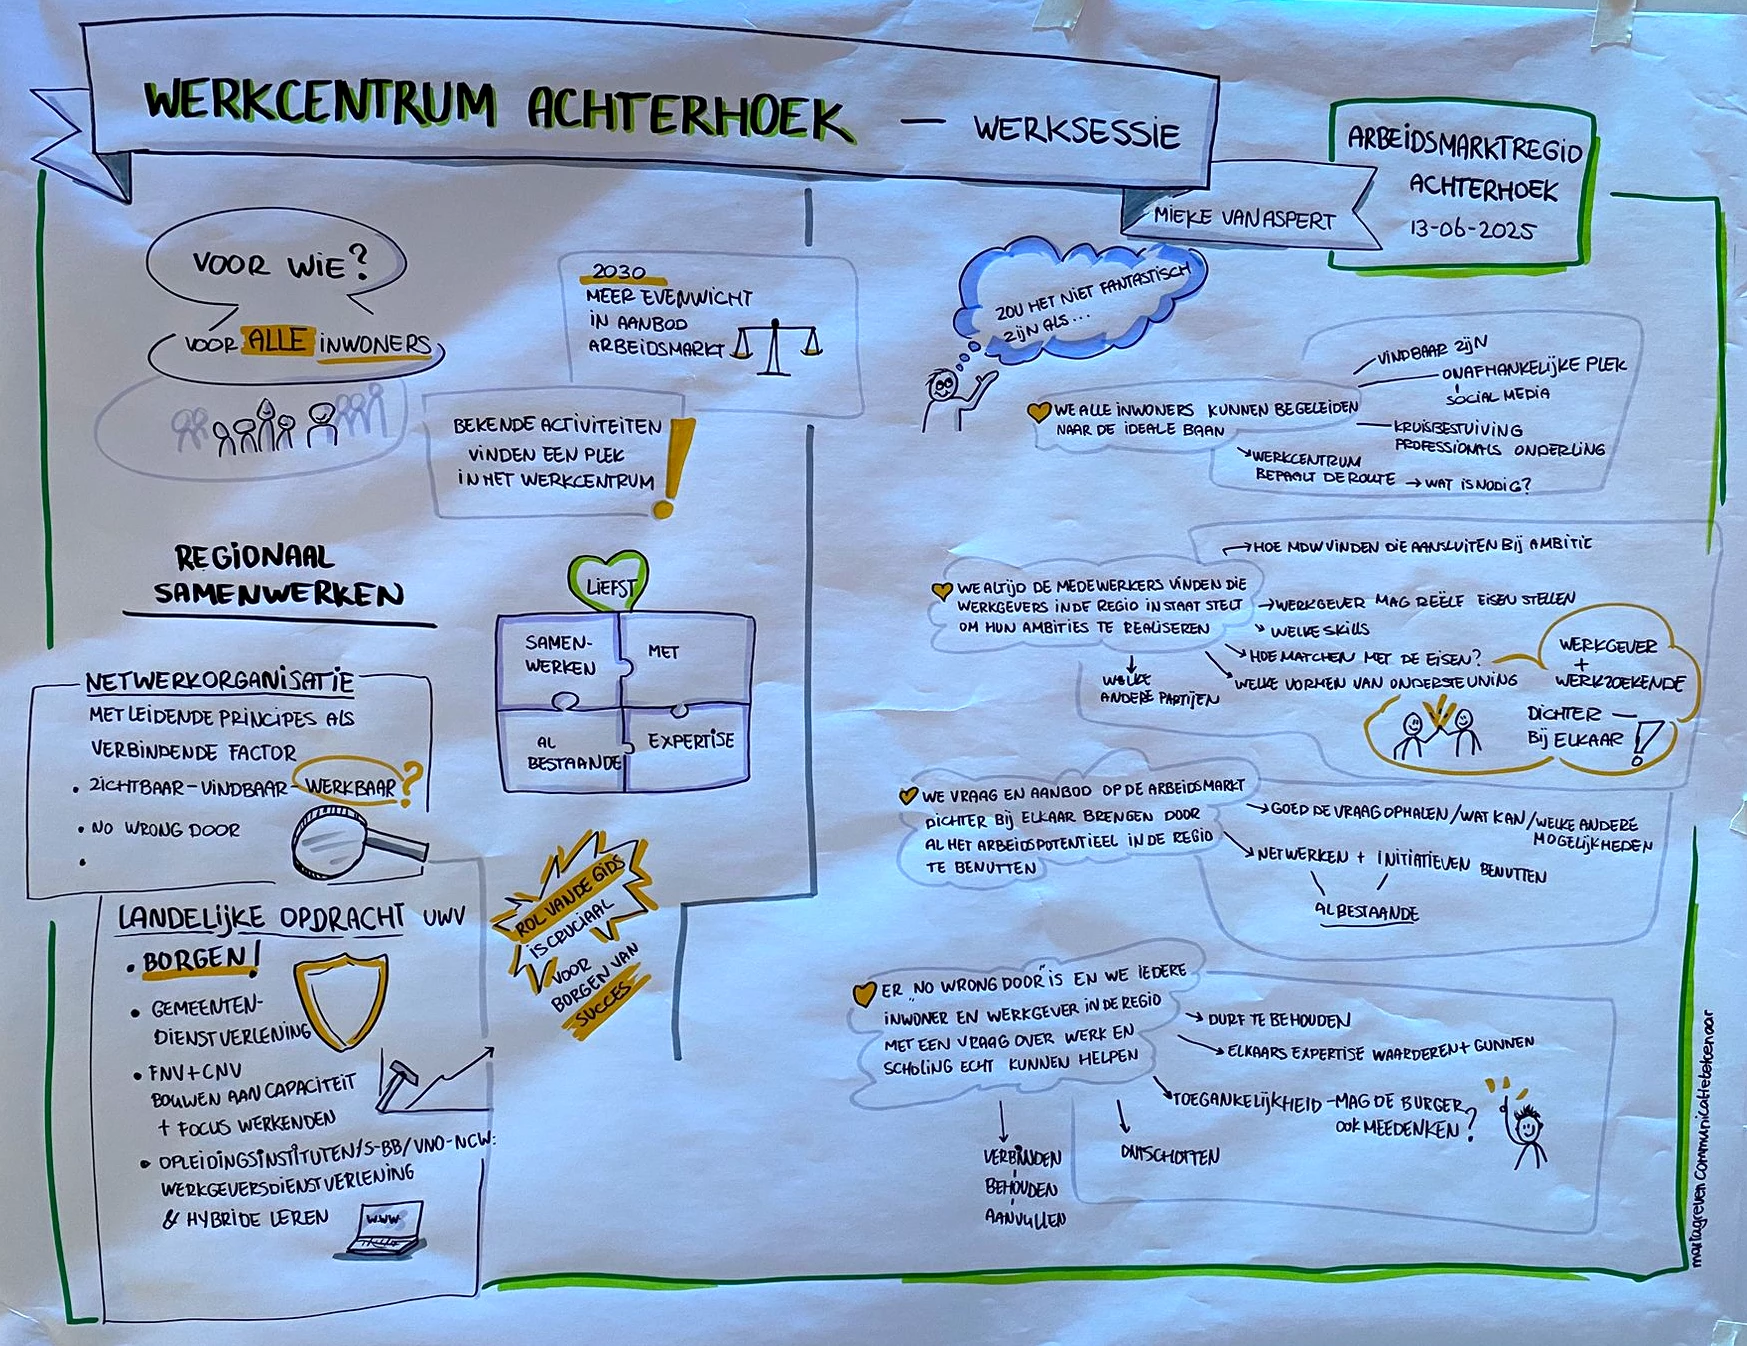 WERKCENTRUM ACHTERHOEK — WERKSESSIE
MIEKE VAN ASPERT
ARBEIDSMARKTREGIO
ACHTERHOEK
13-06-2025
VOOR WIE?
VOOR ALLE INWONERS
2030
MEER EVENWICHT
IN AANBOD
ARBEIDSMARKT
BEKENDE ACTIVITEITEN
VINDEN EEN PLEK
IN HET WERKCENTRUM
!
REGIONAAL
SAMENWERKEN
LIEFST
SAMEN-
WERKEN
MET
AL
BESTAANDE
EXPERTISE
NETWERKORGANISATIE
MET LEIDENDE PRINCIPES ALS
VERBINDENDE FACTOR
• ZICHTBAAR - VINDBAAR - WERKBAAR?
• NO WRONG DOOR
•
LANDELIJKE OPDRACHT UWV
• BORGEN!
• GEMEENTEN-
DIENSTVERLENING
• FNV + CNV
BOUWEN AAN CAPACITEIT
+ FOCUS WERKENDEN
• OPLEIDINGSINSTITUTEN/S-BB/VNO-NCW:
WERKGEVERSDIENSTVERLENING
& HYBRIDE LEREN
WWW
ROL VAN DE GIDS
IS CRUCIAAL
VOOR
BORGEN VAN
SUCCES
ZOU HET NIET FANTASTISCH
ZIJN ALS...
WE ALLE INWONERS KUNNEN BEGELEIDEN
NAAR DE IDEALE BAAN
VINDBAAR ZIJN
ONAFHANKELIJKE PLEK
SOCIAL MEDIA
KRUISBESTUIVING
PROFESSIONALS ONDERLING
WERKCENTRUM
BEPAALT DE ROUTE → WAT IS NODIG?
WE ALTIJD DE MEDEWERKERS VINDEN DIE
WERKGEVERS IN DE REGIO IN STAAT STELT
OM HUN AMBITIES TE REALISEREN
→ HOE MDW VINDEN DIE AANSLUITEN BIJ AMBITIE
→ WERKGEVER MAG REËLE EISEN STELLEN
WELKE SKILLS
HOE MATCHEN MET DE EISEN?
WELKE VORMEN VAN ONDERSTEUNING
WELKE
ANDERE PARTIJEN
WERKGEVER
+
WERKZOEKENDE
DICHTER —
BIJ ELKAAR !
WE VRAAG EN AANBOD OP DE ARBEIDSMARKT
DICHTER BIJ ELKAAR BRENGEN DOOR
AL HET ARBEIDSPOTENTIEEL IN DE REGIO
TE BENUTTEN
→ GOED DE VRAAG OPHALEN / WAT KAN / WELKE ANDERE
MOGELIJKHEDEN
NETWERKEN + INITIATIEVEN BENUTTEN
AL BESTAANDE
ER „NO WRONG DOOR" IS EN WE IEDERE
INWONER EN WERKGEVER IN DE REGIO
MET EEN VRAAG OVER WERK EN
SCHOLING ECHT KUNNEN HELPEN
→ DURF TE BEHOUDEN
→ ELKAARS EXPERTISE WAARDEREN + GUNNEN
TOEGANKELIJKHEID - MAG DE BURGER
OOK MEEDENKEN?
VERBINDEN
BEHOUDEN
AANVULLEN
ONTSCHOTTEN
mariagrevencommunicatietekenaar